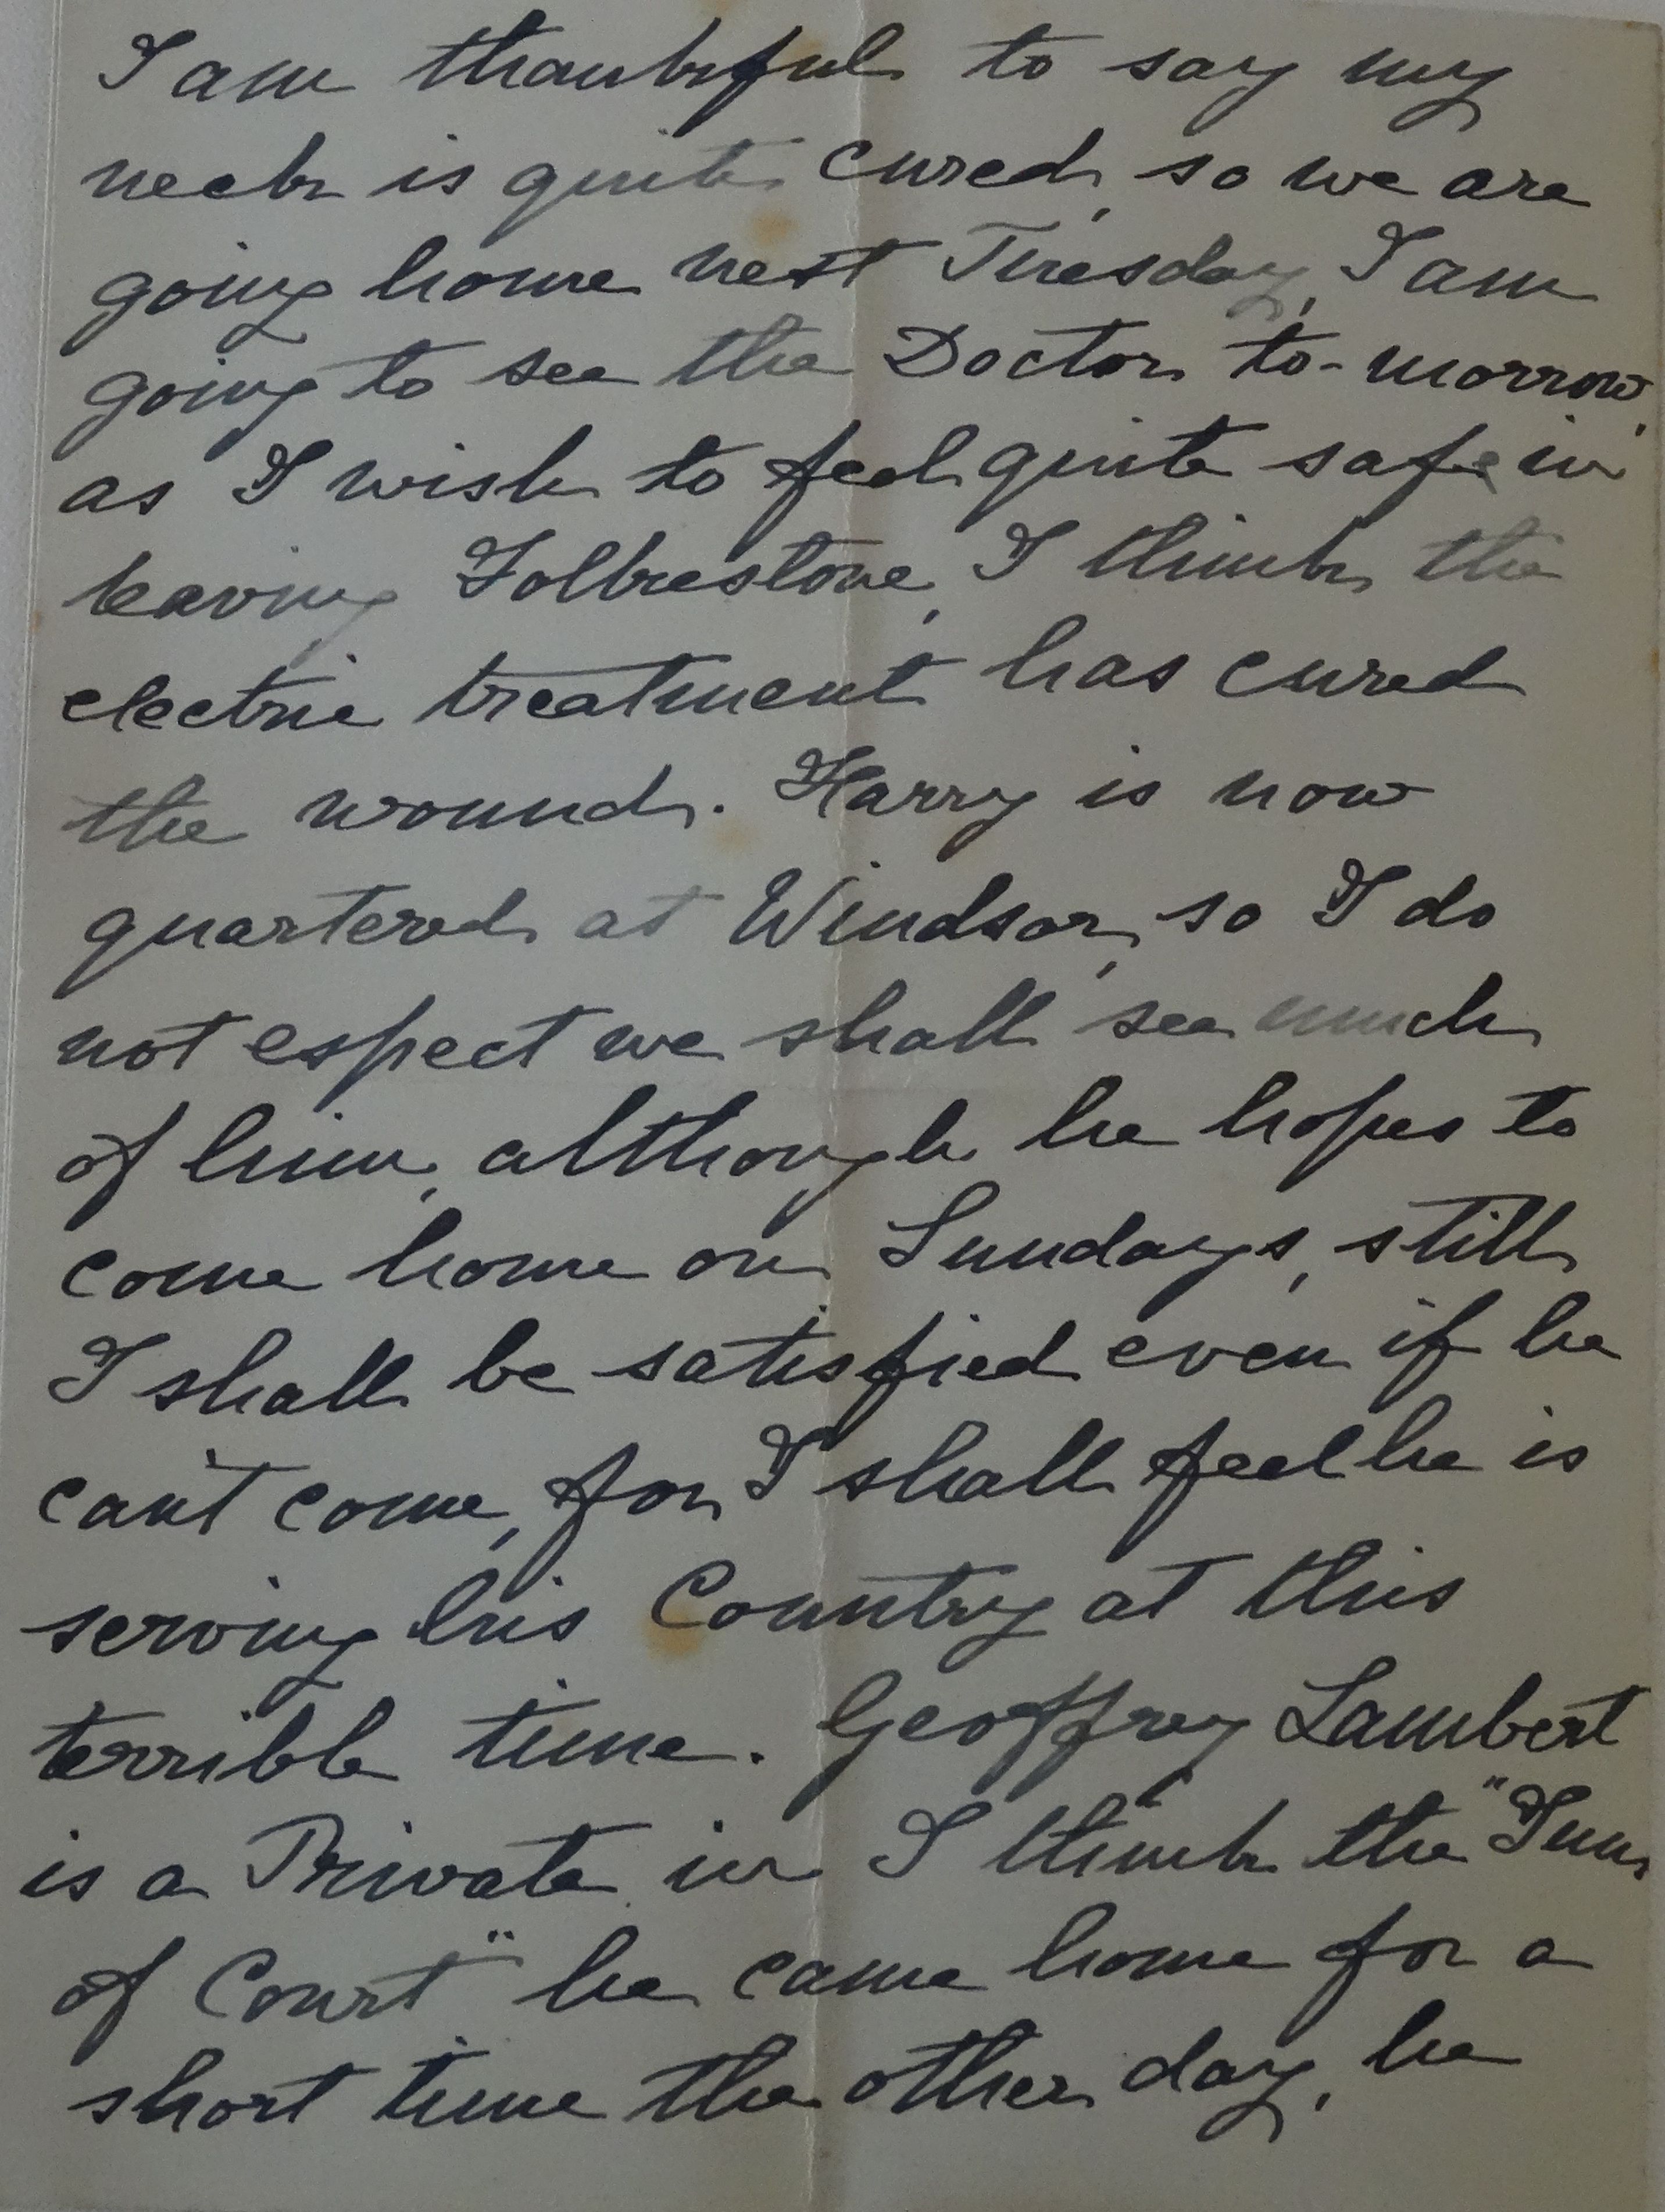 I am thankful to say my
neck is quite cured, so we are
going home next Tuesday, I am
going to see the Doctor to-morrow,
as I wish to feel quite safe in
leaving Folkestone, I think the
electric treatment has cured
the wound. Harry is now
quartered at Windsor, so I do
not expect we shall see much
of him, although he hopes to
come home on Sundays, still
I shall be satisfied even if he
can't come, for I shall feel he is
serving his Country at this
terrible time. Geoffrey Lambert
is a Private in I think the "Inns
of Court" he came home for a
short time the other day, he